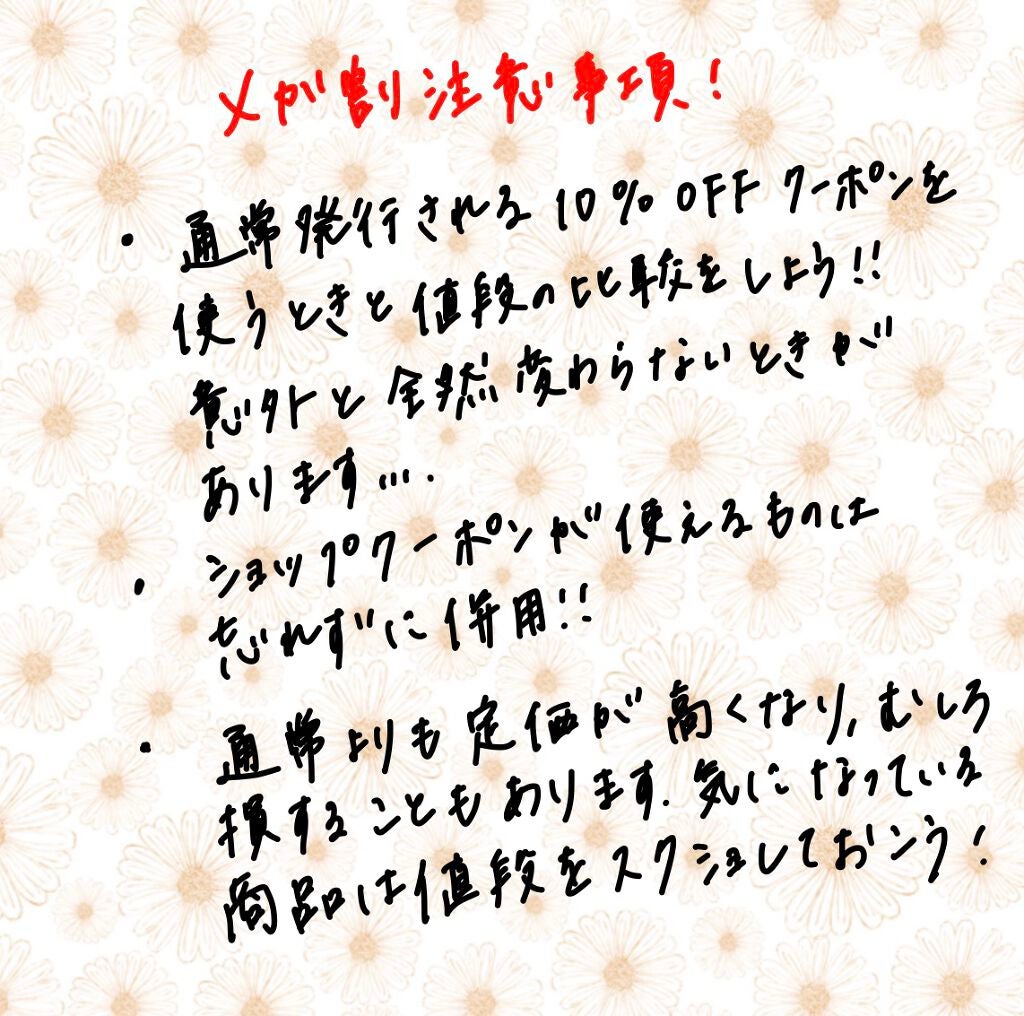 メガ割注意事項!
・通常発行される10%OFFクーポンを
使うときと値段の比較をしよう!!
意外と全然変わらないときが
あります....
・ショップクーポンが使えるものは
忘れずに併用!!
・通常よりも定価が高くなり、むしろ
損することもあります.気になっている
商品は値段をスクショしておこう!